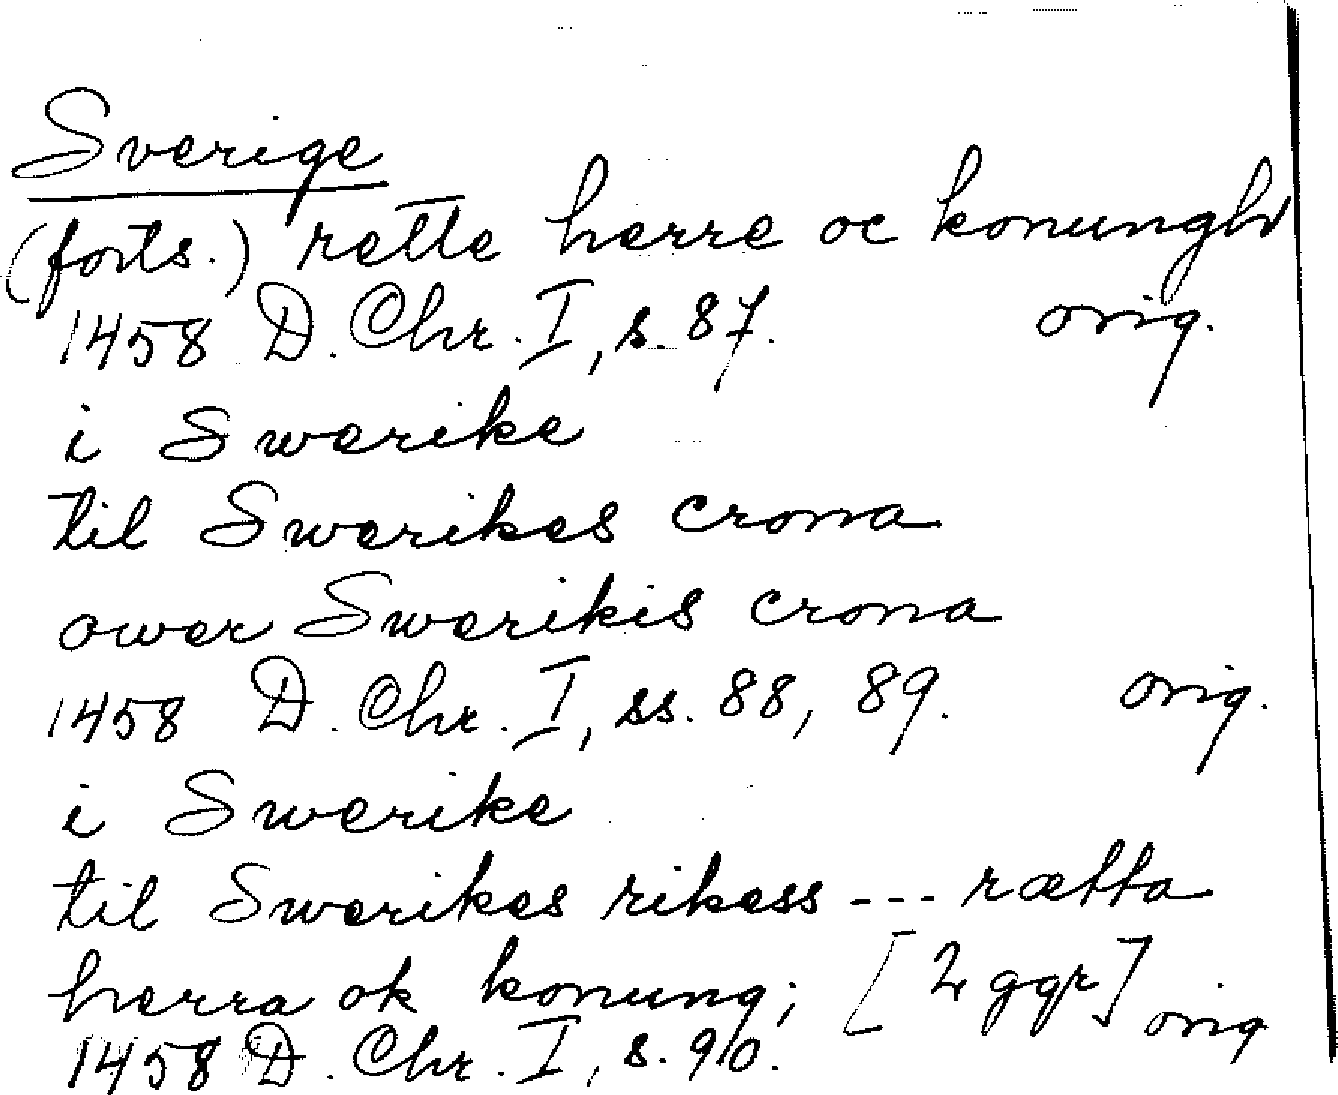 Sverige
(forts.) rette herre oc konungh
1458 D. Chr. I, s. 87. orig.
i Swerike
til Swerikes crona
ower Swerikis crona
1458 D. Chr. I, ss. 88, 89. orig.
i Swerike
til Swerikes rikess --- rætta
herra ok konung; [2 ggr] orig
1458 D. Chr. I, s. 90.